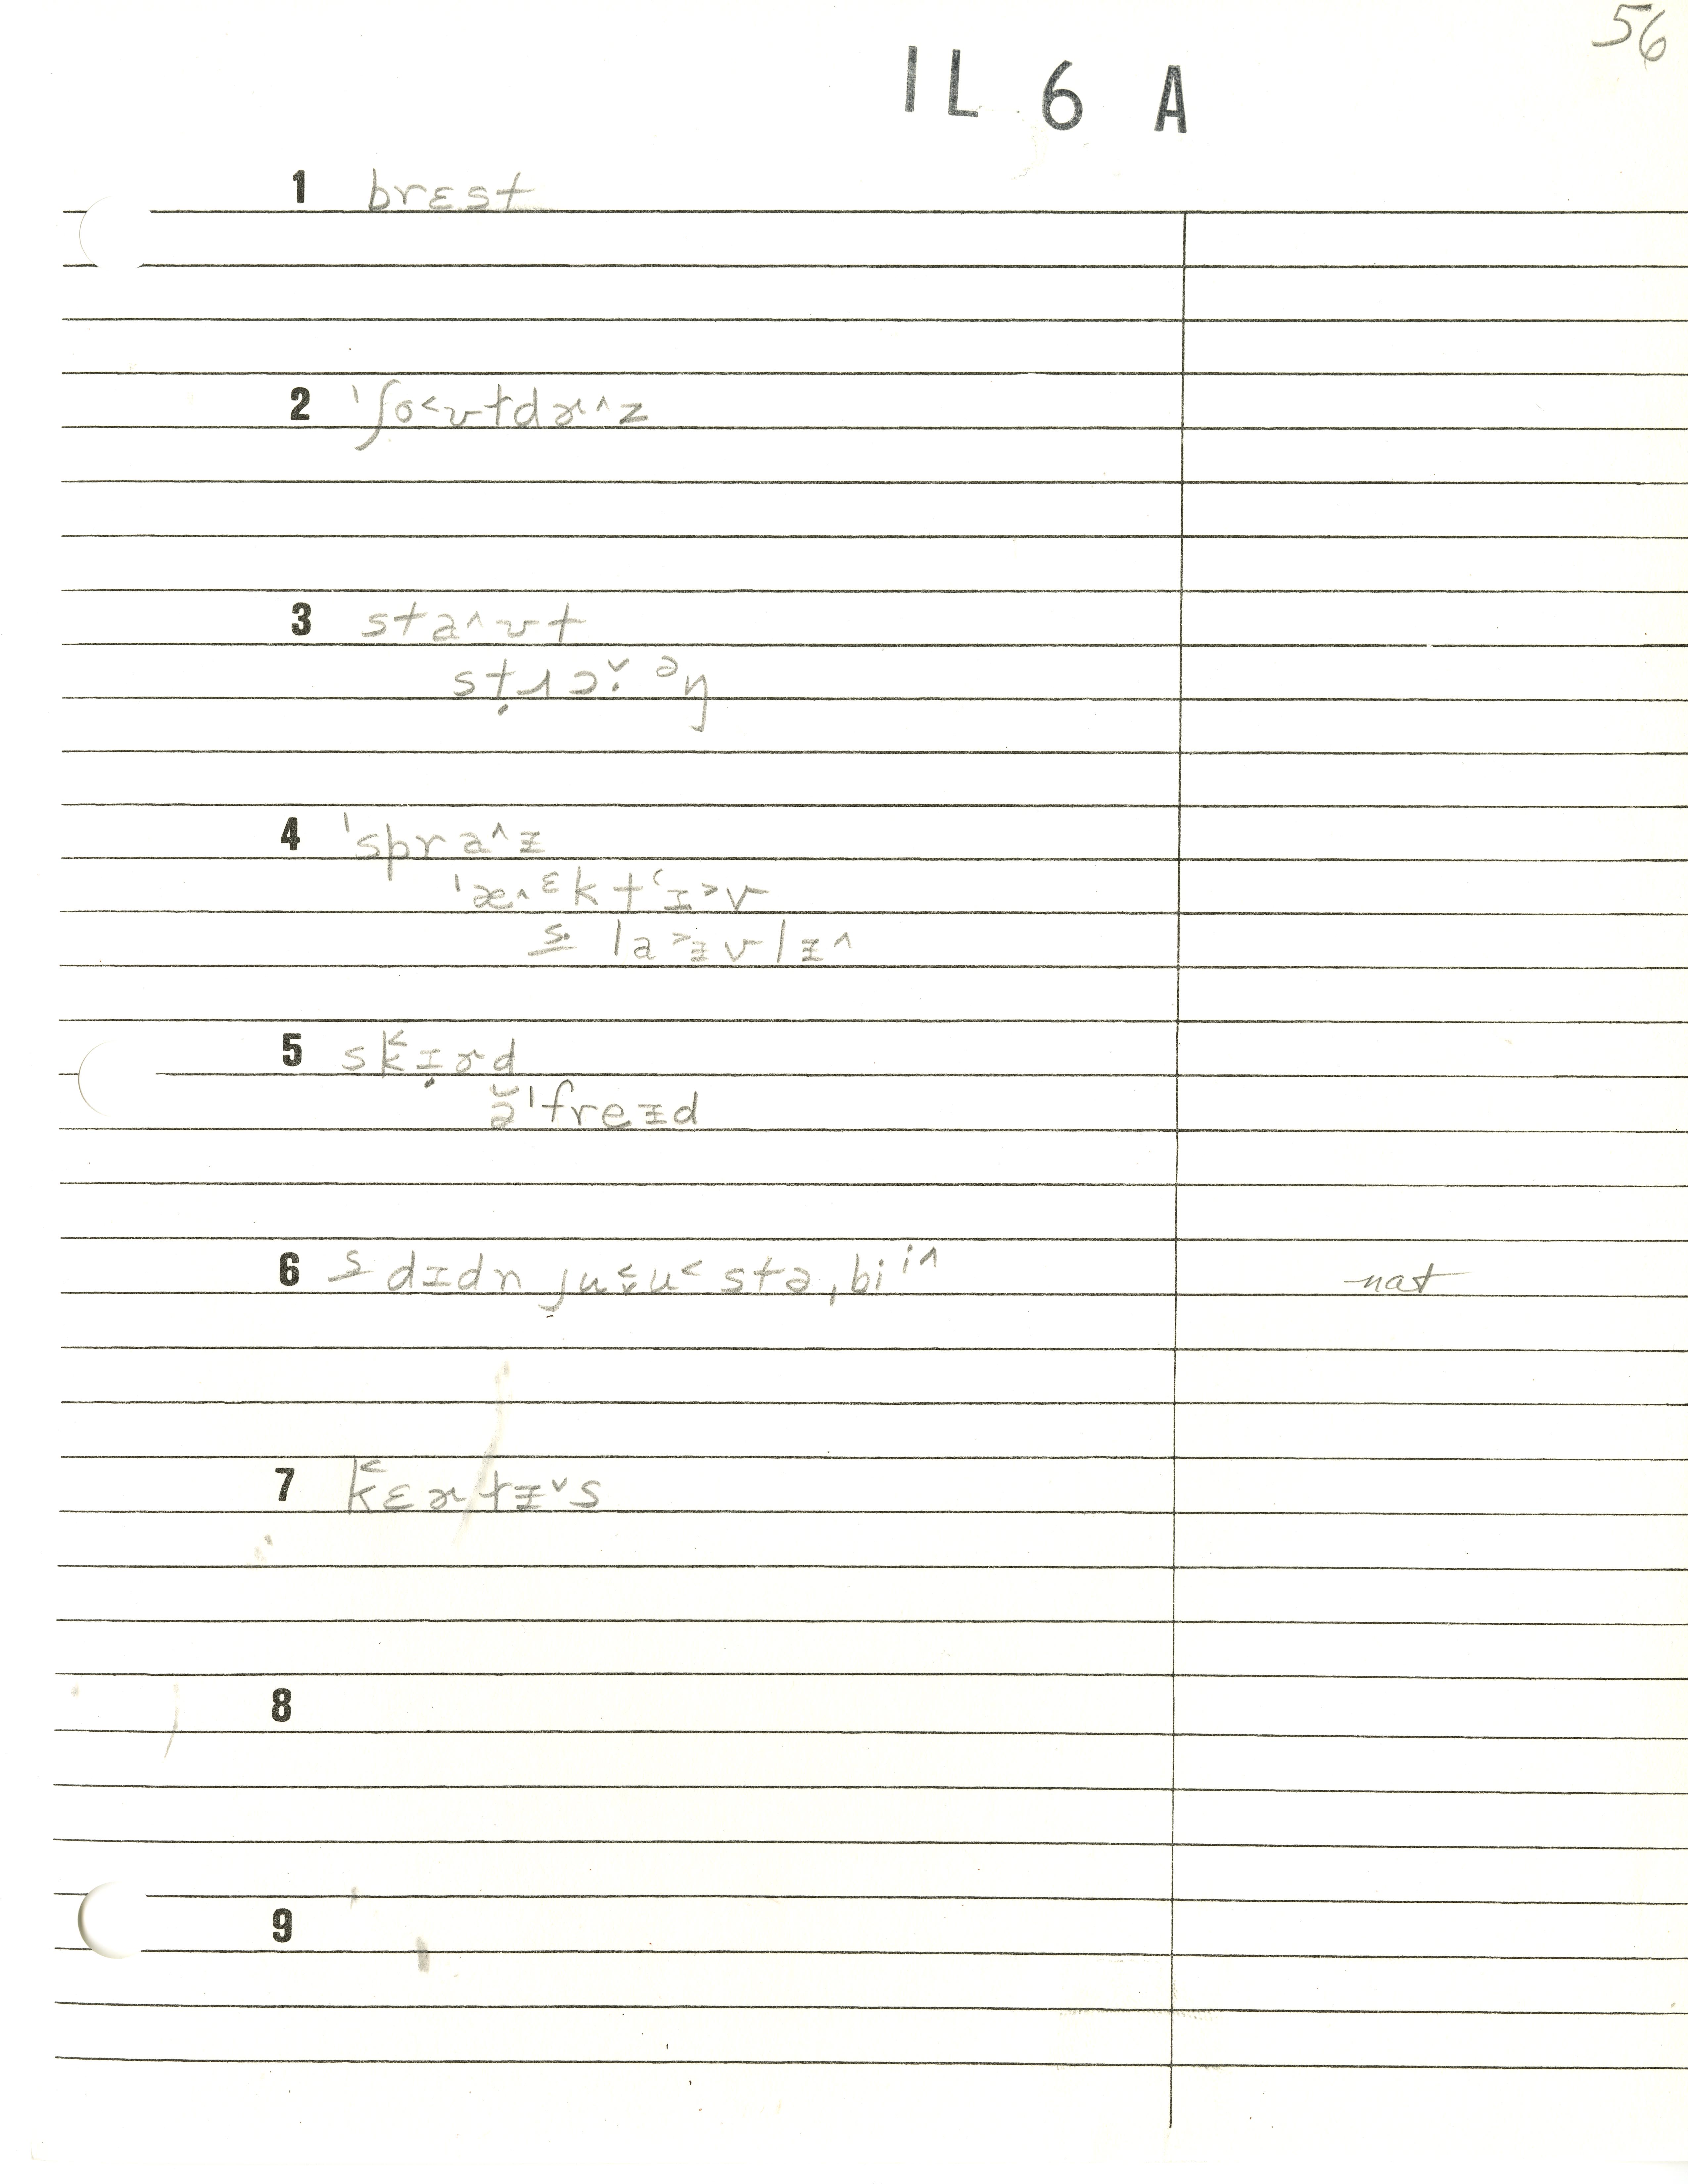 56
IL 6 A
1 brɛst
2 ˈʃo˂ʊtdɚ˄z
3 sta˄ʊt
4 ˈspra˄ɪ
ˈæ˄ᵋktʻɪ˃v
5 sk˂ɪ̣ɚd
ə̆ˈfreɪd
6 s dɪdn ju˂̬u˂ stə ˌbiⁱ˄ nat
7 k˂ɛɚtɪ˅s
8
9